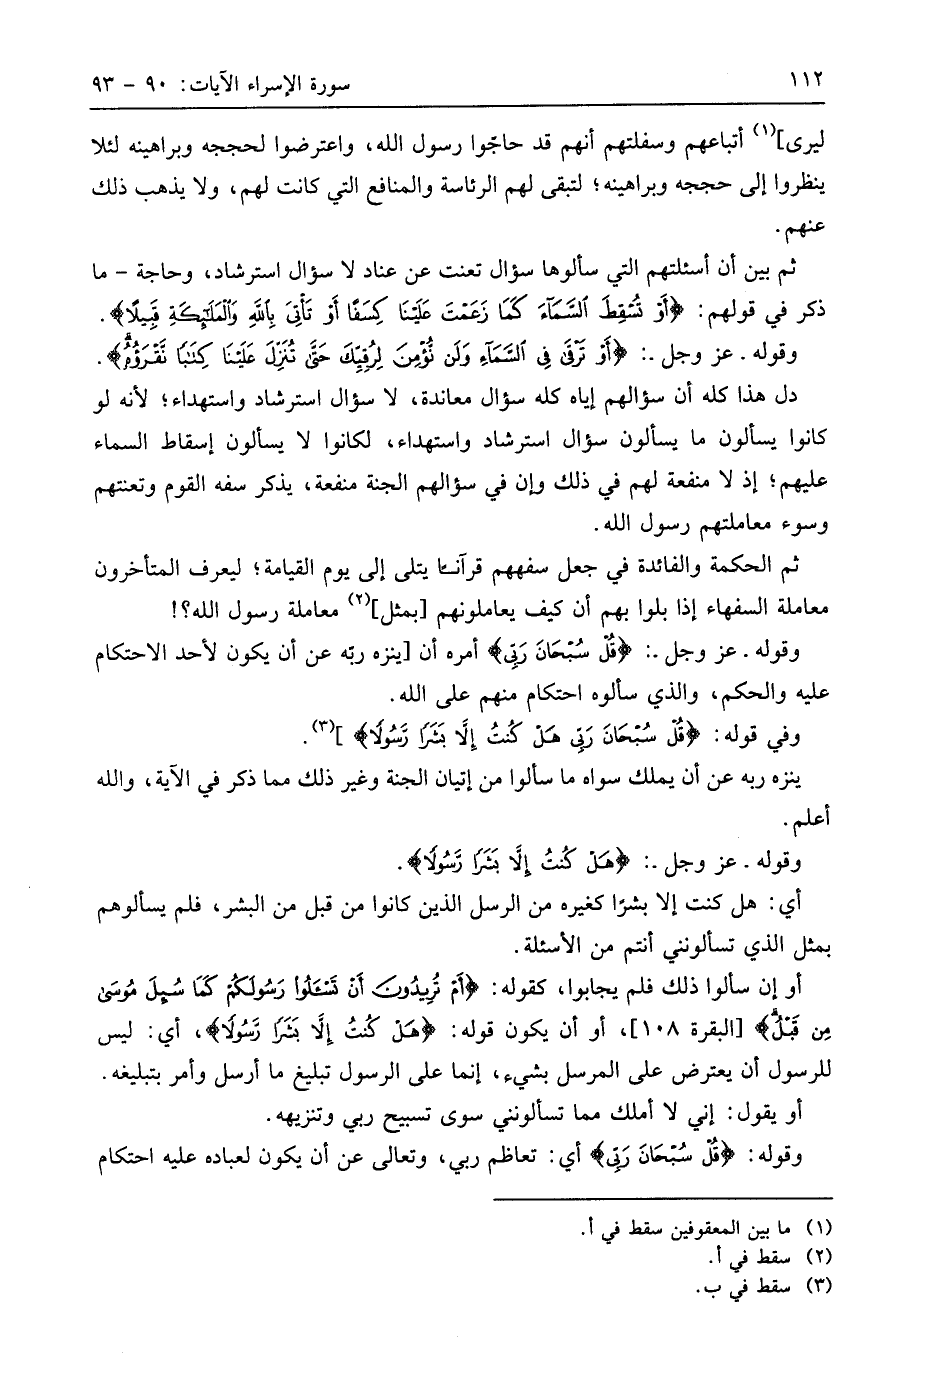 ١١٢
سورة الإسراء الآيات: ٩٠ - ٩٣
ليرى](١) أتباعهم وسفلتهم أنهم قد حاجّوا رسول الله، واعترضوا لحججه وبراهينه لئلا
ينظروا إلى حججه وبراهينه؛ لتبقى لهم الرئاسة والمنافع التي كانت لهم، ولا يذهب ذلك
عنهم.
ثم بين أن أسئلتهم التي سألوها سؤال تعنت عن عناد لا سؤال استرشاد، وحاجة - ما
ذكر في قولهم: ﴿أَوْ تُسْقِطَ ٱلسَّمَآءَ كَمَا زَعَمْتَ عَلَيْنَا كِسَفًا أَوْ تَأْتِىَ بِٱللَّهِ وَٱلْمَلَٰٓئِكَةِ قَبِيلًا﴾.
وقوله . عز وجل .: ﴿أَوْ تَرْقَىٰ فِى ٱلسَّمَآءِ وَلَن نُّؤْمِنَ لِرُقِيِّكَ حَتَّىٰ تُنَزِّلَ عَلَيْنَا كِتَٰبًا نَّقْرَؤُهُۥ﴾.
دل هذا كله أن سؤالهم إياه كله سؤال معاندة، لا سؤال استرشاد واستهداء؛ لأنه لو
كانوا يسألون ما يسألون سؤال استرشاد واستهداء، لكانوا لا يسألون إسقاط السماء
عليهم؛ إذ لا منفعة لهم في ذلك وإن في سؤالهم الجنة منفعة، يذكر سفه القوم وتعنتهم
وسوء معاملتهم رسول الله.
ثم الحكمة والفائدة في جعل سفههم قرآنًا يتلى إلى يوم القيامة؛ ليعرف المتأخرون
معاملة السفهاء إذا بلوا بهم أن كيف يعاملونهم [بمثل](٢) معاملة رسول الله؟!
وقوله . عز وجل .: ﴿قُلْ سُبْحَانَ رَبِّى﴾ أمره أن [ينزه ربّه عن أن يكون لأحد الاحتكام
عليه والحكم، والذي سألوه احتكام منهم على الله.
وفي قوله: ﴿قُلْ سُبْحَانَ رَبِّى هَلْ كُنتُ إِلَّا بَشَرًا رَّسُولًا﴾ ](٣).
ينزه ربه عن أن يملك سواه ما سألوا من إتيان الجنة وغير ذلك مما ذكر في الآية، والله
أعلم.
وقوله . عز وجل .: ﴿هَلْ كُنتُ إِلَّا بَشَرًا رَّسُولًا﴾.
أي: هل كنت إلا بشرًا كغيره من الرسل الذين كانوا من قبل من البشر، فلم يسألوهم
بمثل الذي تسألونني أنتم من الأسئلة.
أو إن سألوا ذلك فلم يجابوا، كقوله: ﴿أَمْ تُرِيدُونَ أَن تَسْـَٔلُوا۟ رَسُولَكُمْ كَمَا سُئِلَ مُوسَىٰ
مِن قَبْلُ﴾ [البقرة ١٠٨]، أو أن يكون قوله: ﴿هَلْ كُنتُ إِلَّا بَشَرًا رَّسُولًا﴾، أي: ليس
للرسول أن يعترض على المرسل بشيء، إنما على الرسول تبليغ ما أرسل وأمر بتبليغه.
أو يقول: إني لا أملك مما تسألونني سوى تسبيح ربي وتنزيهه.
وقوله: ﴿قُلْ سُبْحَانَ رَبِّى﴾ أي: تعاظم ربي، وتعالى عن أن يكون لعباده عليه احتكام
(١) ما بين المعقوفين سقط في أ.
(٢) سقط في أ.
(٣) سقط في ب.